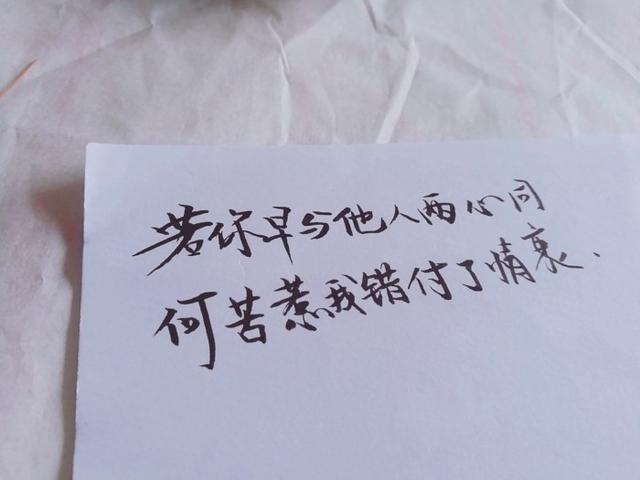 若你早与他人两心同
何苦惹我错付了情衷.